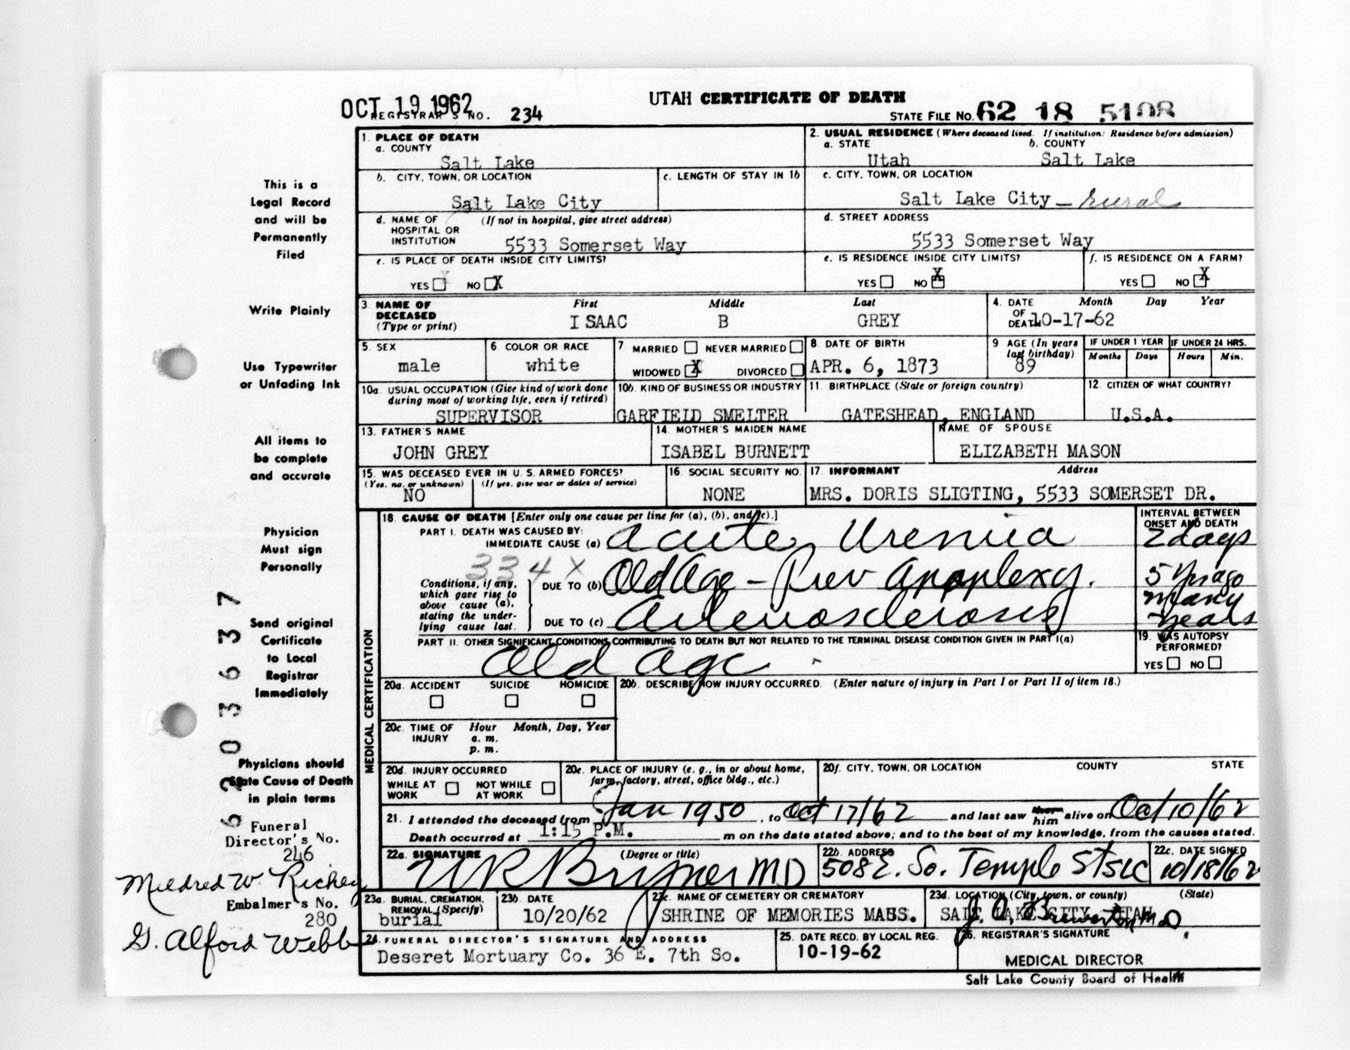 OCT 19 1962
REGISTRAR'S NO. 234
UTAH CERTIFICATE OF DEATH
STATE FILE NO. 62 18 5108
1. PLACE OF DEATH
a. COUNTY
Salt Lake
2. USUAL RESIDENCE (Where deceased lived. If institution: Residence before admission)
a. STATE b. COUNTY
Utah Salt Lake
b. CITY, TOWN, OR LOCATION c. LENGTH OF STAY IN 1b
Salt Lake City
c. CITY, TOWN, OR LOCATION
Salt Lake City - rural
d. NAME OF HOSPITAL OR INSTITUTION (If not in hospital, give street address)
5533 Somerset Way
d. STREET ADDRESS
5533 Somerset Way
e. IS PLACE OF DEATH INSIDE CITY LIMITS?
YES NO X
e. IS RESIDENCE INSIDE CITY LIMITS? f. IS RESIDENCE ON A FARM?
YES NO X YES NO X
3. NAME OF DECEASED (Type or print) First Middle Last
ISAAC B GREY
4. DATE OF DEATH Month Day Year
10-17-62
5. SEX 6. COLOR OR RACE 7 MARRIED NEVER MARRIED 8. DATE OF BIRTH 9. AGE (In years last birthday) IF UNDER 1 YEAR IF UNDER 24 HRS.
Months Days Hours Min.
male white WIDOWED X DIVORCED APR. 6, 1873 89
10a. USUAL OCCUPATION (Give kind of work done during most of working life, even if retired) 10b. KIND OF BUSINESS OR INDUSTRY 11. BIRTHPLACE (State or foreign country) 12. CITIZEN OF WHAT COUNTRY?
SUPERVISOR GARFIELD SMELTER GATESHEAD, ENGLAND U.S.A.
13. FATHER'S NAME 14. MOTHER'S MAIDEN NAME NAME OF SPOUSE
JOHN GREY ISABEL BURNETT ELIZABETH MASON
15. WAS DECEASED EVER IN U. S. ARMED FORCES? 16. SOCIAL SECURITY NO. 17. INFORMANT Address
(Yes, no, or unknown) (If yes, give war or dates of service)
NO NONE MRS. DORIS SLIGTING, 5533 SOMERSET DR.
MEDICAL CERTIFICATION
18. CAUSE OF DEATH [Enter only one cause per line for (a), (b), and (c).] INTERVAL BETWEEN ONSET AND DEATH
PART I. DEATH WAS CAUSED BY:
IMMEDIATE CAUSE (a) Acute Uremia 2 days
334 X
Conditions, if any, which gave rise to above cause (a), stating the underlying cause last.
DUE TO (b) Old Age - Prev Apoplexy. 5 yrs ago
DUE TO (c) Arteriosclerosis many years
PART II. OTHER SIGNIFICANT CONDITIONS CONTRIBUTING TO DEATH BUT NOT RELATED TO THE TERMINAL DISEASE CONDITION GIVEN IN PART I(a)
Old Age
19. WAS AUTOPSY PERFORMED?
YES NO
20a. ACCIDENT SUICIDE HOMICIDE 20b. DESCRIBE HOW INJURY OCCURRED. (Enter nature of injury in Part I or Part II of item 18.)
20c. TIME OF INJURY Hour Month, Day, Year
a. m.
p. m.
20d. INJURY OCCURRED 20e. PLACE OF INJURY (e. g., in or about home, farm, factory, street, office bldg., etc.) 20f. CITY, TOWN, OR LOCATION COUNTY STATE
WHILE AT WORK NOT WHILE AT WORK
21. I attended the deceased from Jan 1950, to Oct 17/62 and last saw him alive on Oct 10/62
Death occurred at 1:15 P.M. m on the date stated above; and to the best of my knowledge, from the causes stated.
22a. SIGNATURE (Degree or title) 22b. ADDRESS 22c. DATE SIGNED
MD 508 E. So. Temple St SLC 10/18/62
23a. BURIAL, CREMATION, REMOVAL (Specify) 23b. DATE 23c. NAME OF CEMETERY OR CREMATORY 23d. LOCATION (City, town, or county) (State)
burial 10/20/62 SHRINE OF MEMORIES MAUS. SALT LAKE CITY, UTAH
24. FUNERAL DIRECTOR'S SIGNATURE AND ADDRESS 25. DATE RECD. BY LOCAL REG. 26. REGISTRAR'S SIGNATURE
Deseret Mortuary Co. 36 E. 7th So. 10-19-62
MEDICAL DIRECTOR
Salt Lake County Board of Health
This is a
Legal Record
and will be
Permanently
Filed
Write Plainly
Use Typewriter
or Unfading Ink
All items to
be complete
and accurate
Physician
Must sign
Personally
Send original
Certificate
to Local
Registrar
Immediately
Physicians should
State Cause of Death
in plain terms
Funeral
Director's No.
246
Mildred W. Richey
Embalmer's No.
280
G. Alford Webb